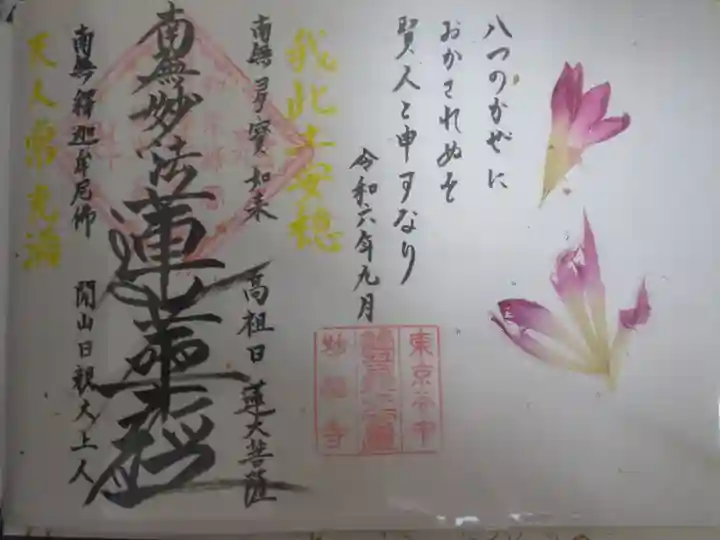 八つのかぜに
おかされぬを
賢人と申すなり
令和六年九月
我此土安穏
南無多寳如来 高祖日蓮大菩薩
南無妙法蓮華経
南無釋迦牟尼佛 開山日親大上人
天人常充満
東京谷中